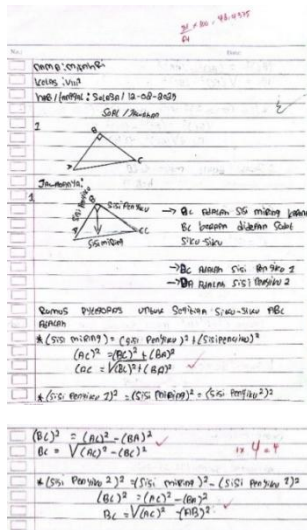 No.
Date
Kelas : VIII
Hari / tanggal : Selasa / 12-08-2025
Soal / Jawaban
1
B
A
C
Jawabannya:
1
Sisi Penyiku
B
Sisi Penyiku
A
C
Sisi miring
→ AC Adalah Sisi miring karena
BC berada didepan Sudut
Siku-Siku
→ BC Adalah Sisi Penyiku 1
→ BA Adalah Sisi Penyiku 2
Rumus PYTEGORAS untuk Segitiga Siku-Siku ABC
Adalah
* (Sisi miring)² = (Sisi Penyiku)² + (Sisi Penyiku)²
(AC)² = (BC)² + (BA)²
(AC = √(BC)² + (BA)²
* (Sisi Penyiku 1)² = (Sisi miring)² - (Sisi Penyiku 2)²
(BC)² = (AC)² - (BA)²
BC = √(AC)² - (BC)²
* (Sisi Penyiku 2)² = (Sisi miring)² - (Sisi Penyiku 1)²
(BC)² = (AC)² - (BA)²
BC = √(AC)² - (AB)²